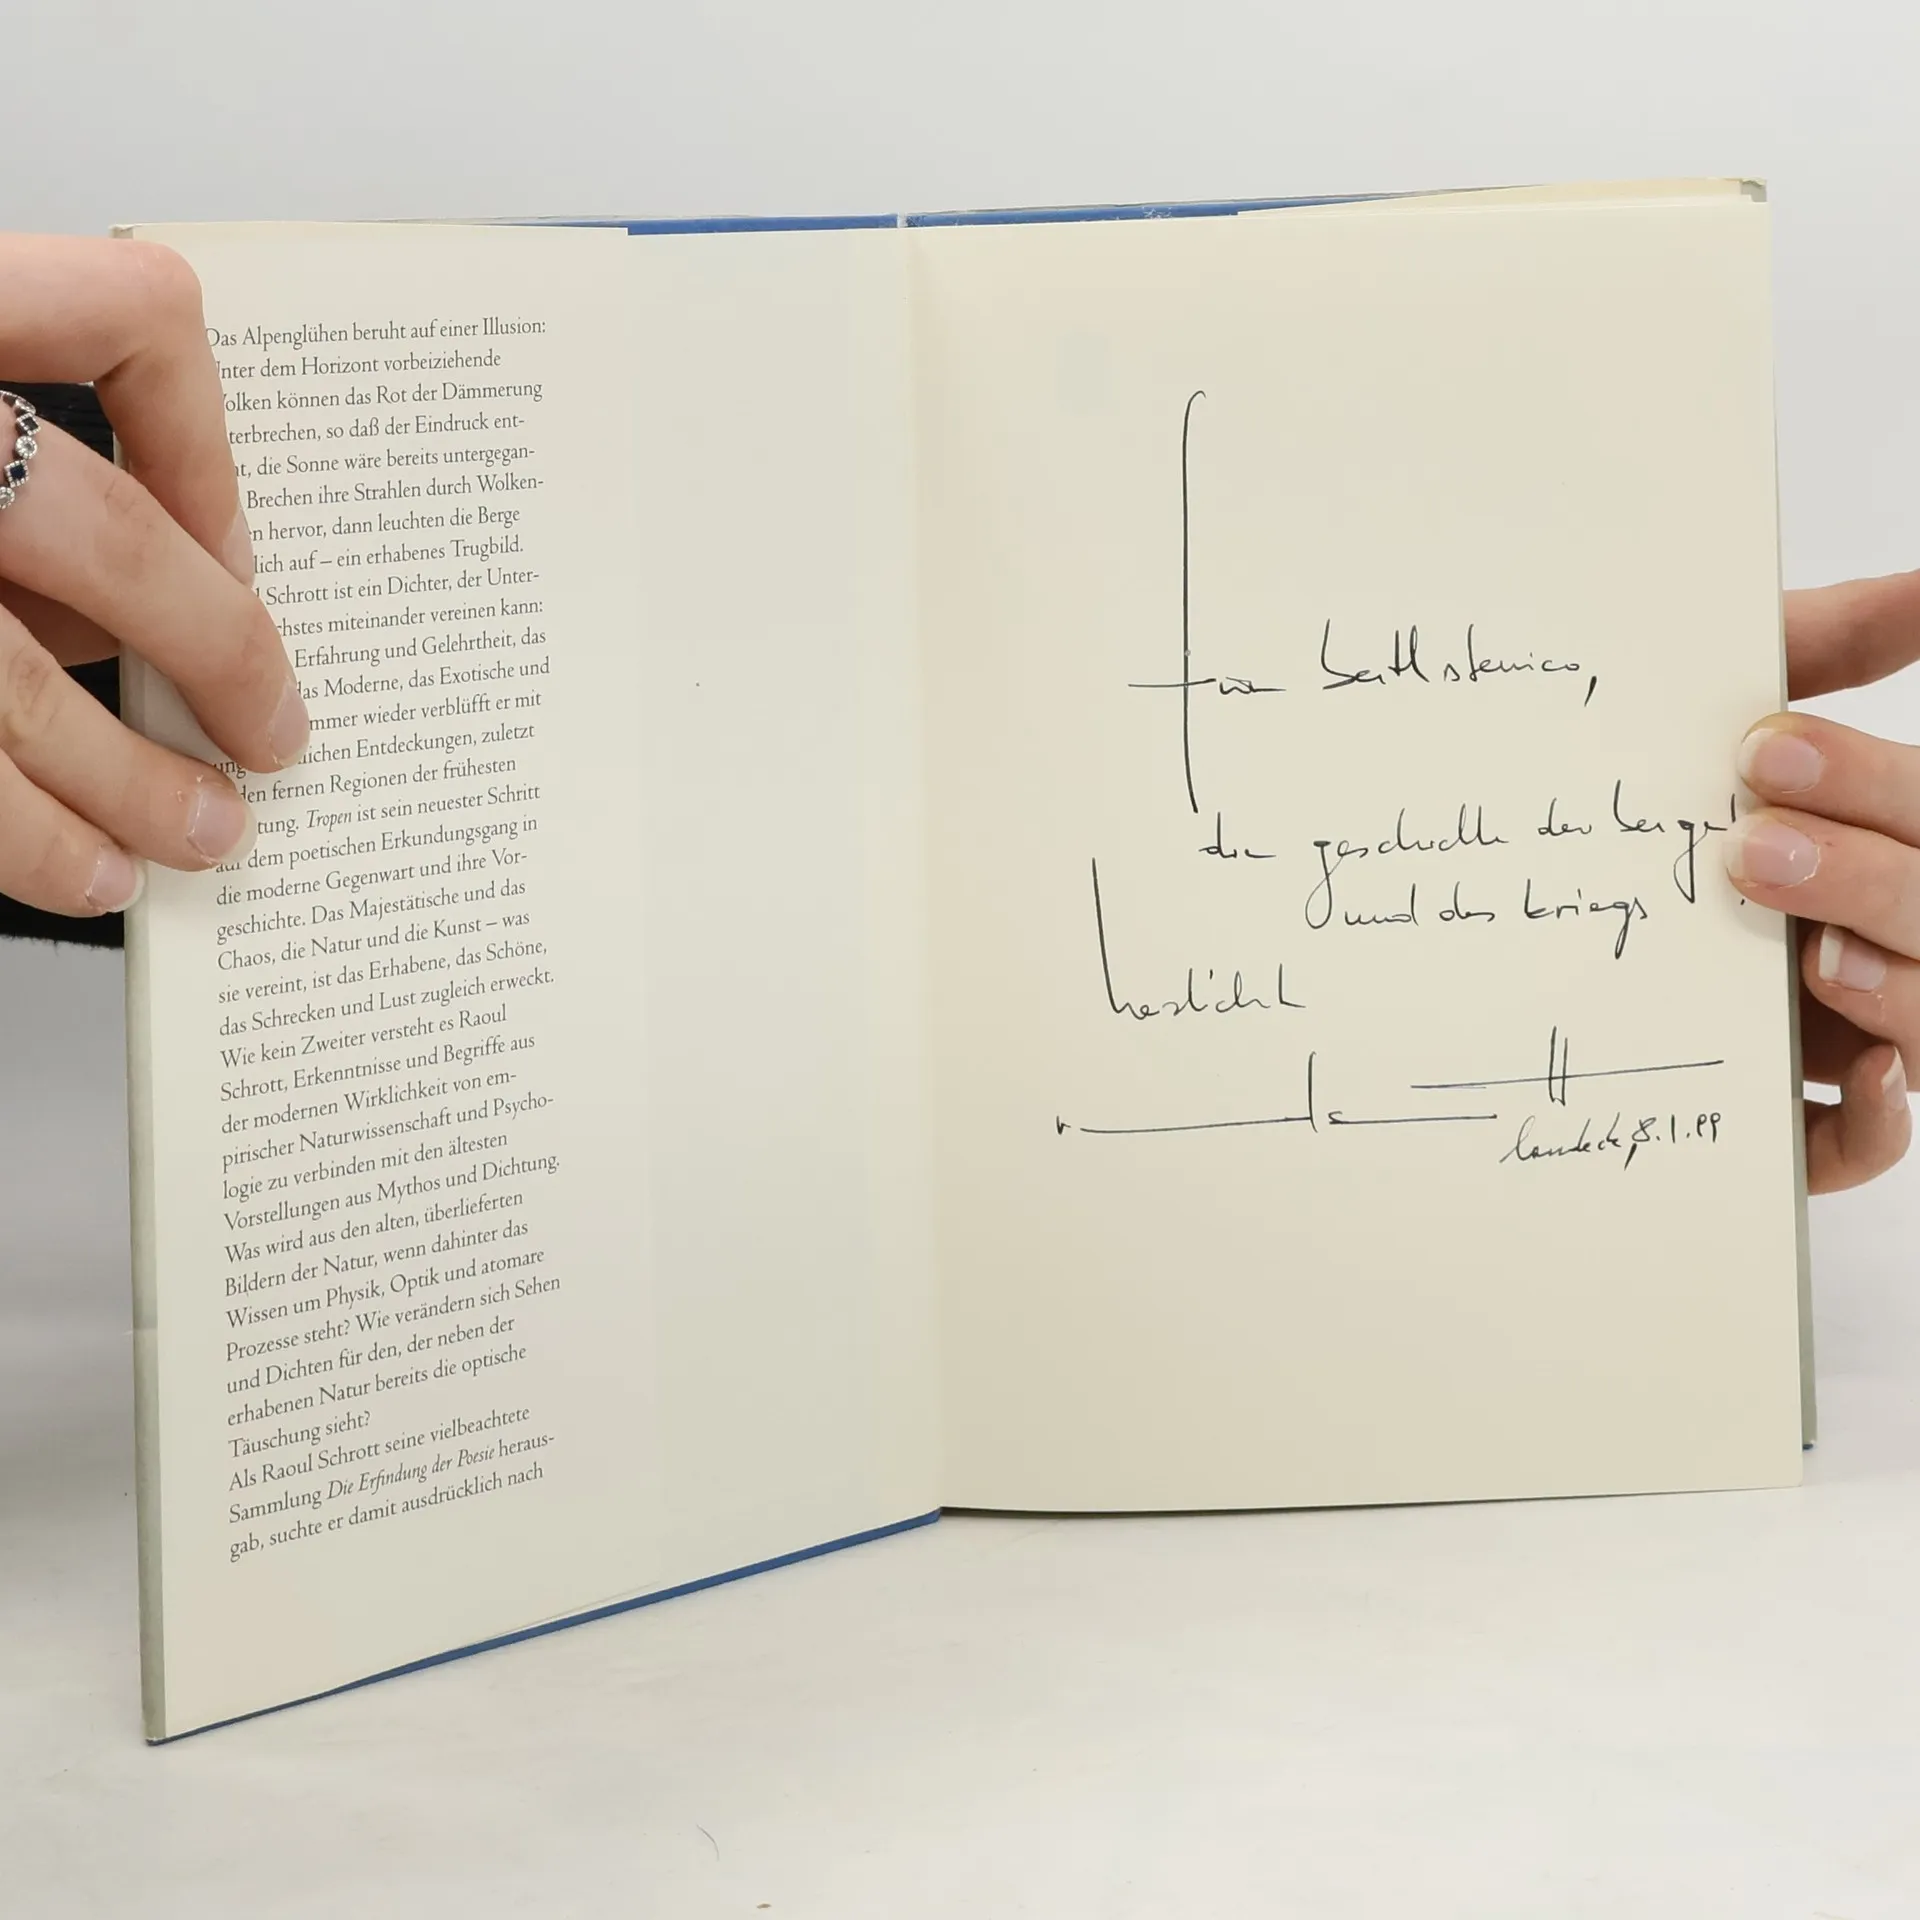 Das Alpenglühen beruht auf einer Illusion:
nter dem Horizont vorbeiziehende
olken können das Rot der Dämmerung
terbrechen, so daß der Eindruck ent-
ht, die Sonne wäre bereits untergegan-
Brechen ihre Strahlen durch Wolken-
n hervor, dann leuchten die Berge
lich auf – ein erhabenes Trugbild.
l Schrott ist ein Dichter, der Unter-
chstes miteinander vereinen kann:
Erfahrung und Gelehrtheit, das
das Moderne, das Exotische und
mmer wieder verblüfft er mit
ung lichen Entdeckungen, zuletzt
den fernen Regionen der frühesten
tung. Tropen ist sein neuester Schritt
auf dem poetischen Erkundungsgang in
die moderne Gegenwart und ihre Vor-
geschichte. Das Majestätische und das
Chaos, die Natur und die Kunst – was
sie vereint, ist das Erhabene, das Schöne,
das Schrecken und Lust zugleich erweckt.
Wie kein Zweiter versteht es Raoul
Schrott, Erkenntnisse und Begriffe aus
der modernen Wirklichkeit von em-
pirischer Naturwissenschaft und Psycho-
logie zu verbinden mit den ältesten
Vorstellungen aus Mythos und Dichtung.
Was wird aus den alten, überlieferten
Bildern der Natur, wenn dahinter das
Wissen um Physik, Optik und atomare
Prozesse steht? Wie verändern sich Sehen
und Dichten für den, der neben der
erhabenen Natur bereits die optische
Täuschung sieht?
Als Raoul Schrott seine vielbeachtete
Sammlung Die Erfindung der Poesie heraus-
gab, suchte er damit ausdrücklich nach
für
die der berge
und des kriegs
herzlichst
landeck, 8.1.99